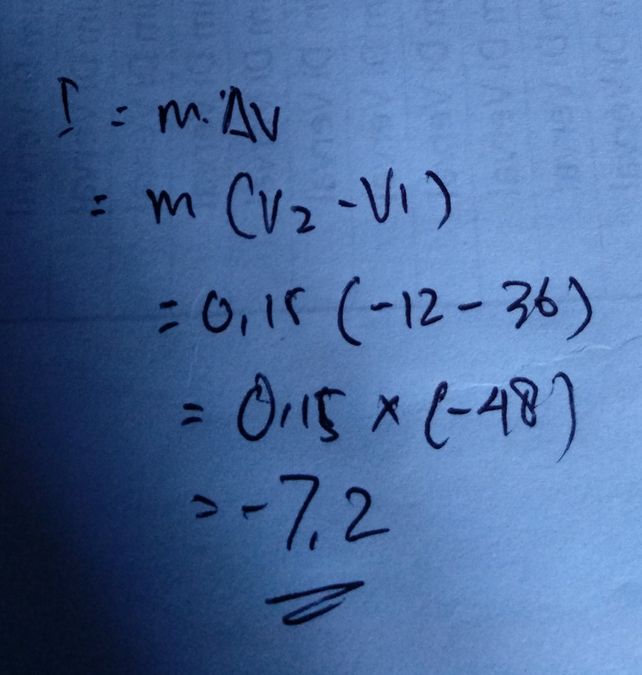 I = m.ΔV
= m (V2 - V1)
= 0,15 (-12 - 36)
= 0,15 x (-48)
= -7,2